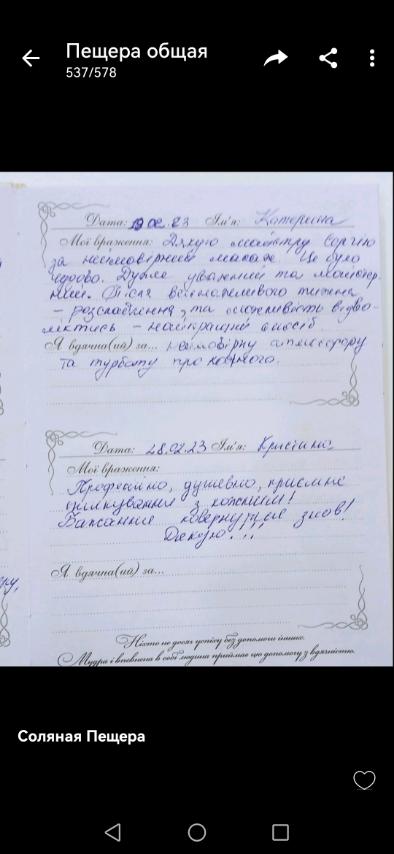 Пещера общая
537/578
Дата: 19.02.23 Ім'я: Катерина
Мої враження: Дякую майстру Сергію
за неймовірний масаж. Це було
чудово. Дуже уважний та
Після тижня
– розслаблення, та можливість відво-
ліктись – найкращий спосіб
Я вдячна(ий) за... неймовірну атмосферу
та турботу про кожного.
Дата: 28.02.23 Ім'я: Крістіна
Мої враження:
Професійно, душевно, приємне
спілкування з кожним!
Бажання повернутися знов!
Дякую!!!
Я вдячна(ий) за...
Ніхто не досяг успіху без допомоги інших.
Мудра і впевнена в собі людина приймає цю допомогу з вдячністю.
Соляная Пещера